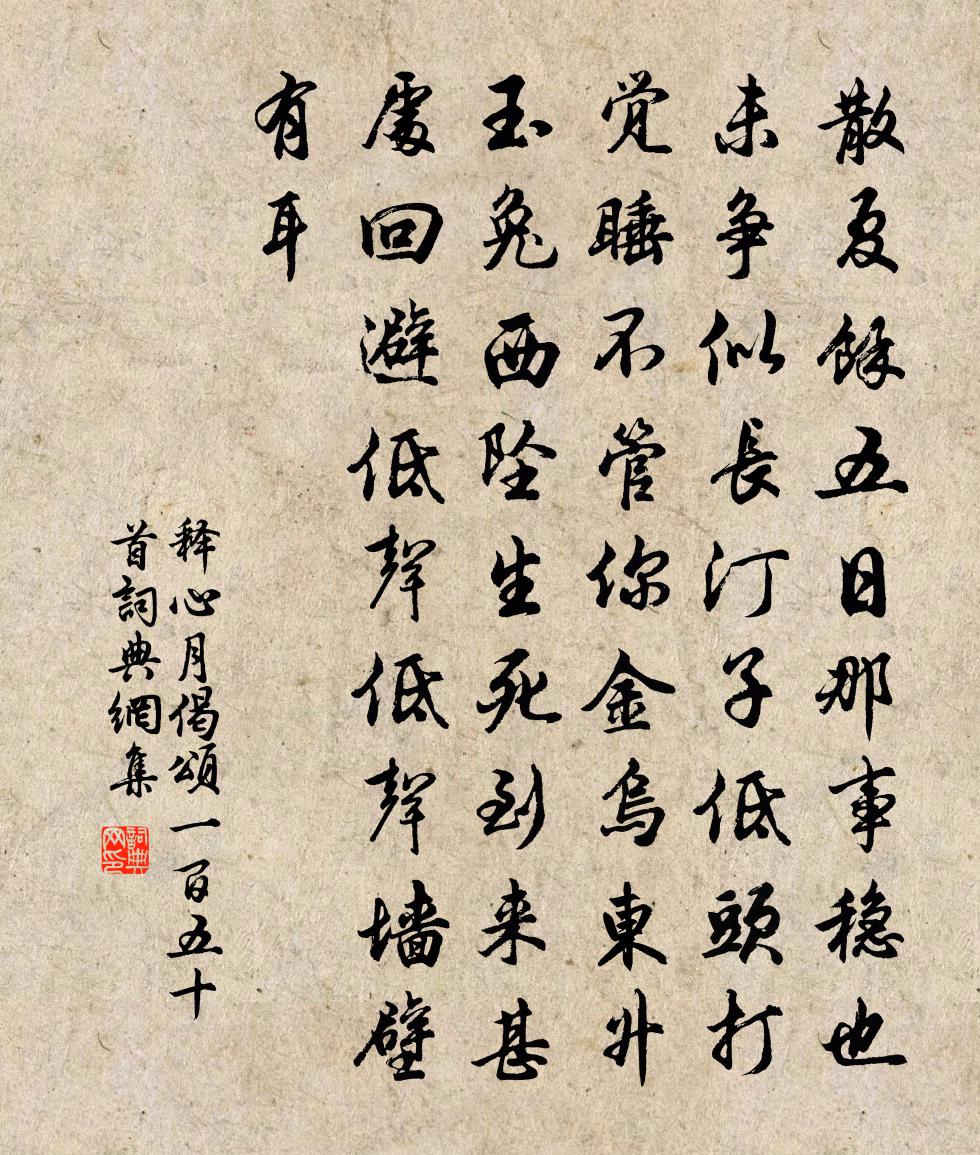 散夏餘五日那事稳也
未争似長汀子低頭打
觉睡不管你金烏東升
玉兔西坠生死到来甚
處回避低聲低聲墙壁
有耳
释心月偈頌一百五十
首詞典網集
詞典网印